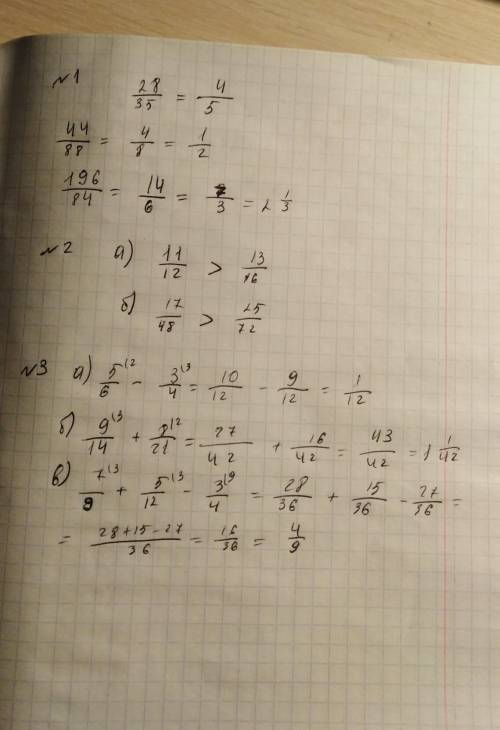 №1 28/35 = 4/5
44/88 = 4/8 = 1/2
196/84 = 14/6 = 7/3 = 2 1/3
№2 а) 11/12 > 13/16
б) 17/48 > 25/72
№3 а) 5^(2/6 - 3^(3/4 = 10/12 - 9/12 = 1/12
б) 9^(3/14 + 8^(2/21 = 27/42 + 16/42 = 43/42 = 1 1/42
в) 7^(3/9 + 5^(3/12 - 3^(9/4 = 28/36 + 15/36 - 27/36 =
= 28+15-27/36 = 16/36 = 4/9